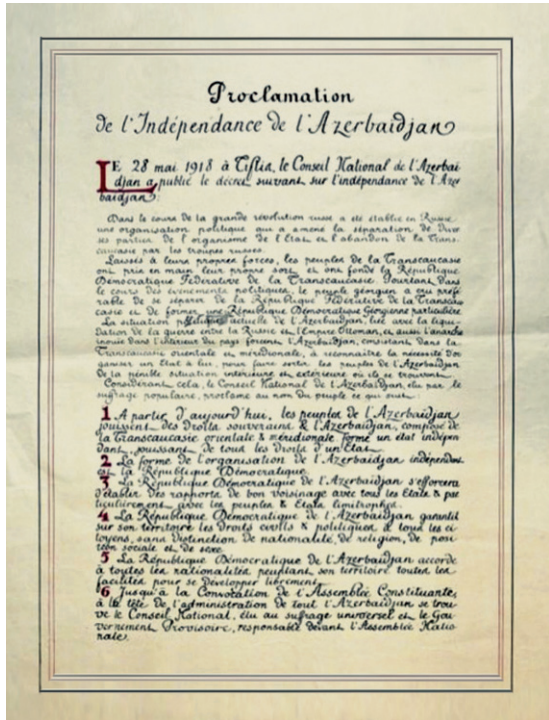 Proclamation
de l'Indépendance de l'Azerbaidjan
LE 28 mai 1918 à Tiflis, le Conseil National de l'Azerbai
djan a publié le décret suivant sur l'indépendance de l'Azer
baidjan:
Dans le cours de la grande révolution russe a été établie en Russie
une organisation politique qui a amené la séparation de diver
ses parties de l'organisme de l'Etat et l'abandon de la Trans-
caucasie par les troupes russes.
Laissés à leurs propres forces, les peuples de la Transcaucasie
ont pris en main leur propre sort et ont fondé la République
Démocratique Fédérative de la Transcaucasie. Pourtant dans
le cours des événements politiques, le peuple géorgien a cru préfé
rable de se séparer de la République Fédérative de la Transcau
casie et de former une République Démocratique Géorgienne particulière
La situation politique actuelle de l'Azerbaidjan, liée avec la liqui-
dation de la guerre entre la Russie et l'Empire Ottoman, et aussi l'anarchie
inouie dans l'intérieur du pays forcent l'Azerbaidjan, consistant dans la
Transcaucasie orientale et méridionale, à reconnaître la nécessité d'or
ganiser un Etat à lui, pour faire sortir les peuples de l'Azerbaidjan
de la pénible situation intérieure et extérieure où ils se trouvent.
Considérant cela, le Conseil National de l'Azerbaidjan, élu par le
suffrage populaire, proclame au nom du peuple ce qui suit:
1 A partir d'aujourd'hui, les peuples de l'Azerbaidjan
jouissent des droits souverains & l'Azerbaidjan, composé de
la Transcaucasie orientale & méridionale forme un état indépen
dant, jouissant de tous les droits d'un Etat.
2 La forme de l'organisation de l'Azerbaidjan indépendant
est la République Démocratique.
3 La République Démocratique de l'Azerbaidjan s'efforcera
d'établir des rapports de bon voisinage avec tous les Etats & par
ticulièrement avec les peuples & Etats limitrophes.
4 La République Démocratique de l'Azerbaidjan garantit
sur son territoire les droits civils & politiques à tous les ci
toyens, sans distinction de nationalité, de religion, de posi
tion sociale et de sexe.
5 La République Démocratique de l'Azerbaidjan accorde
à toutes les nationalités peuplant son territoire toutes les
facilités pour se développer librement.
6 Jusqu'à la Convocation de l'Assemblée Constituante,
à la tête de l'administration de tout l'Azerbaidjan se trou-
ve le Conseil National, élu au suffrage universel et le Gou-
vernement Provisoire, responsable devant l'Assemblée Natio
nale.